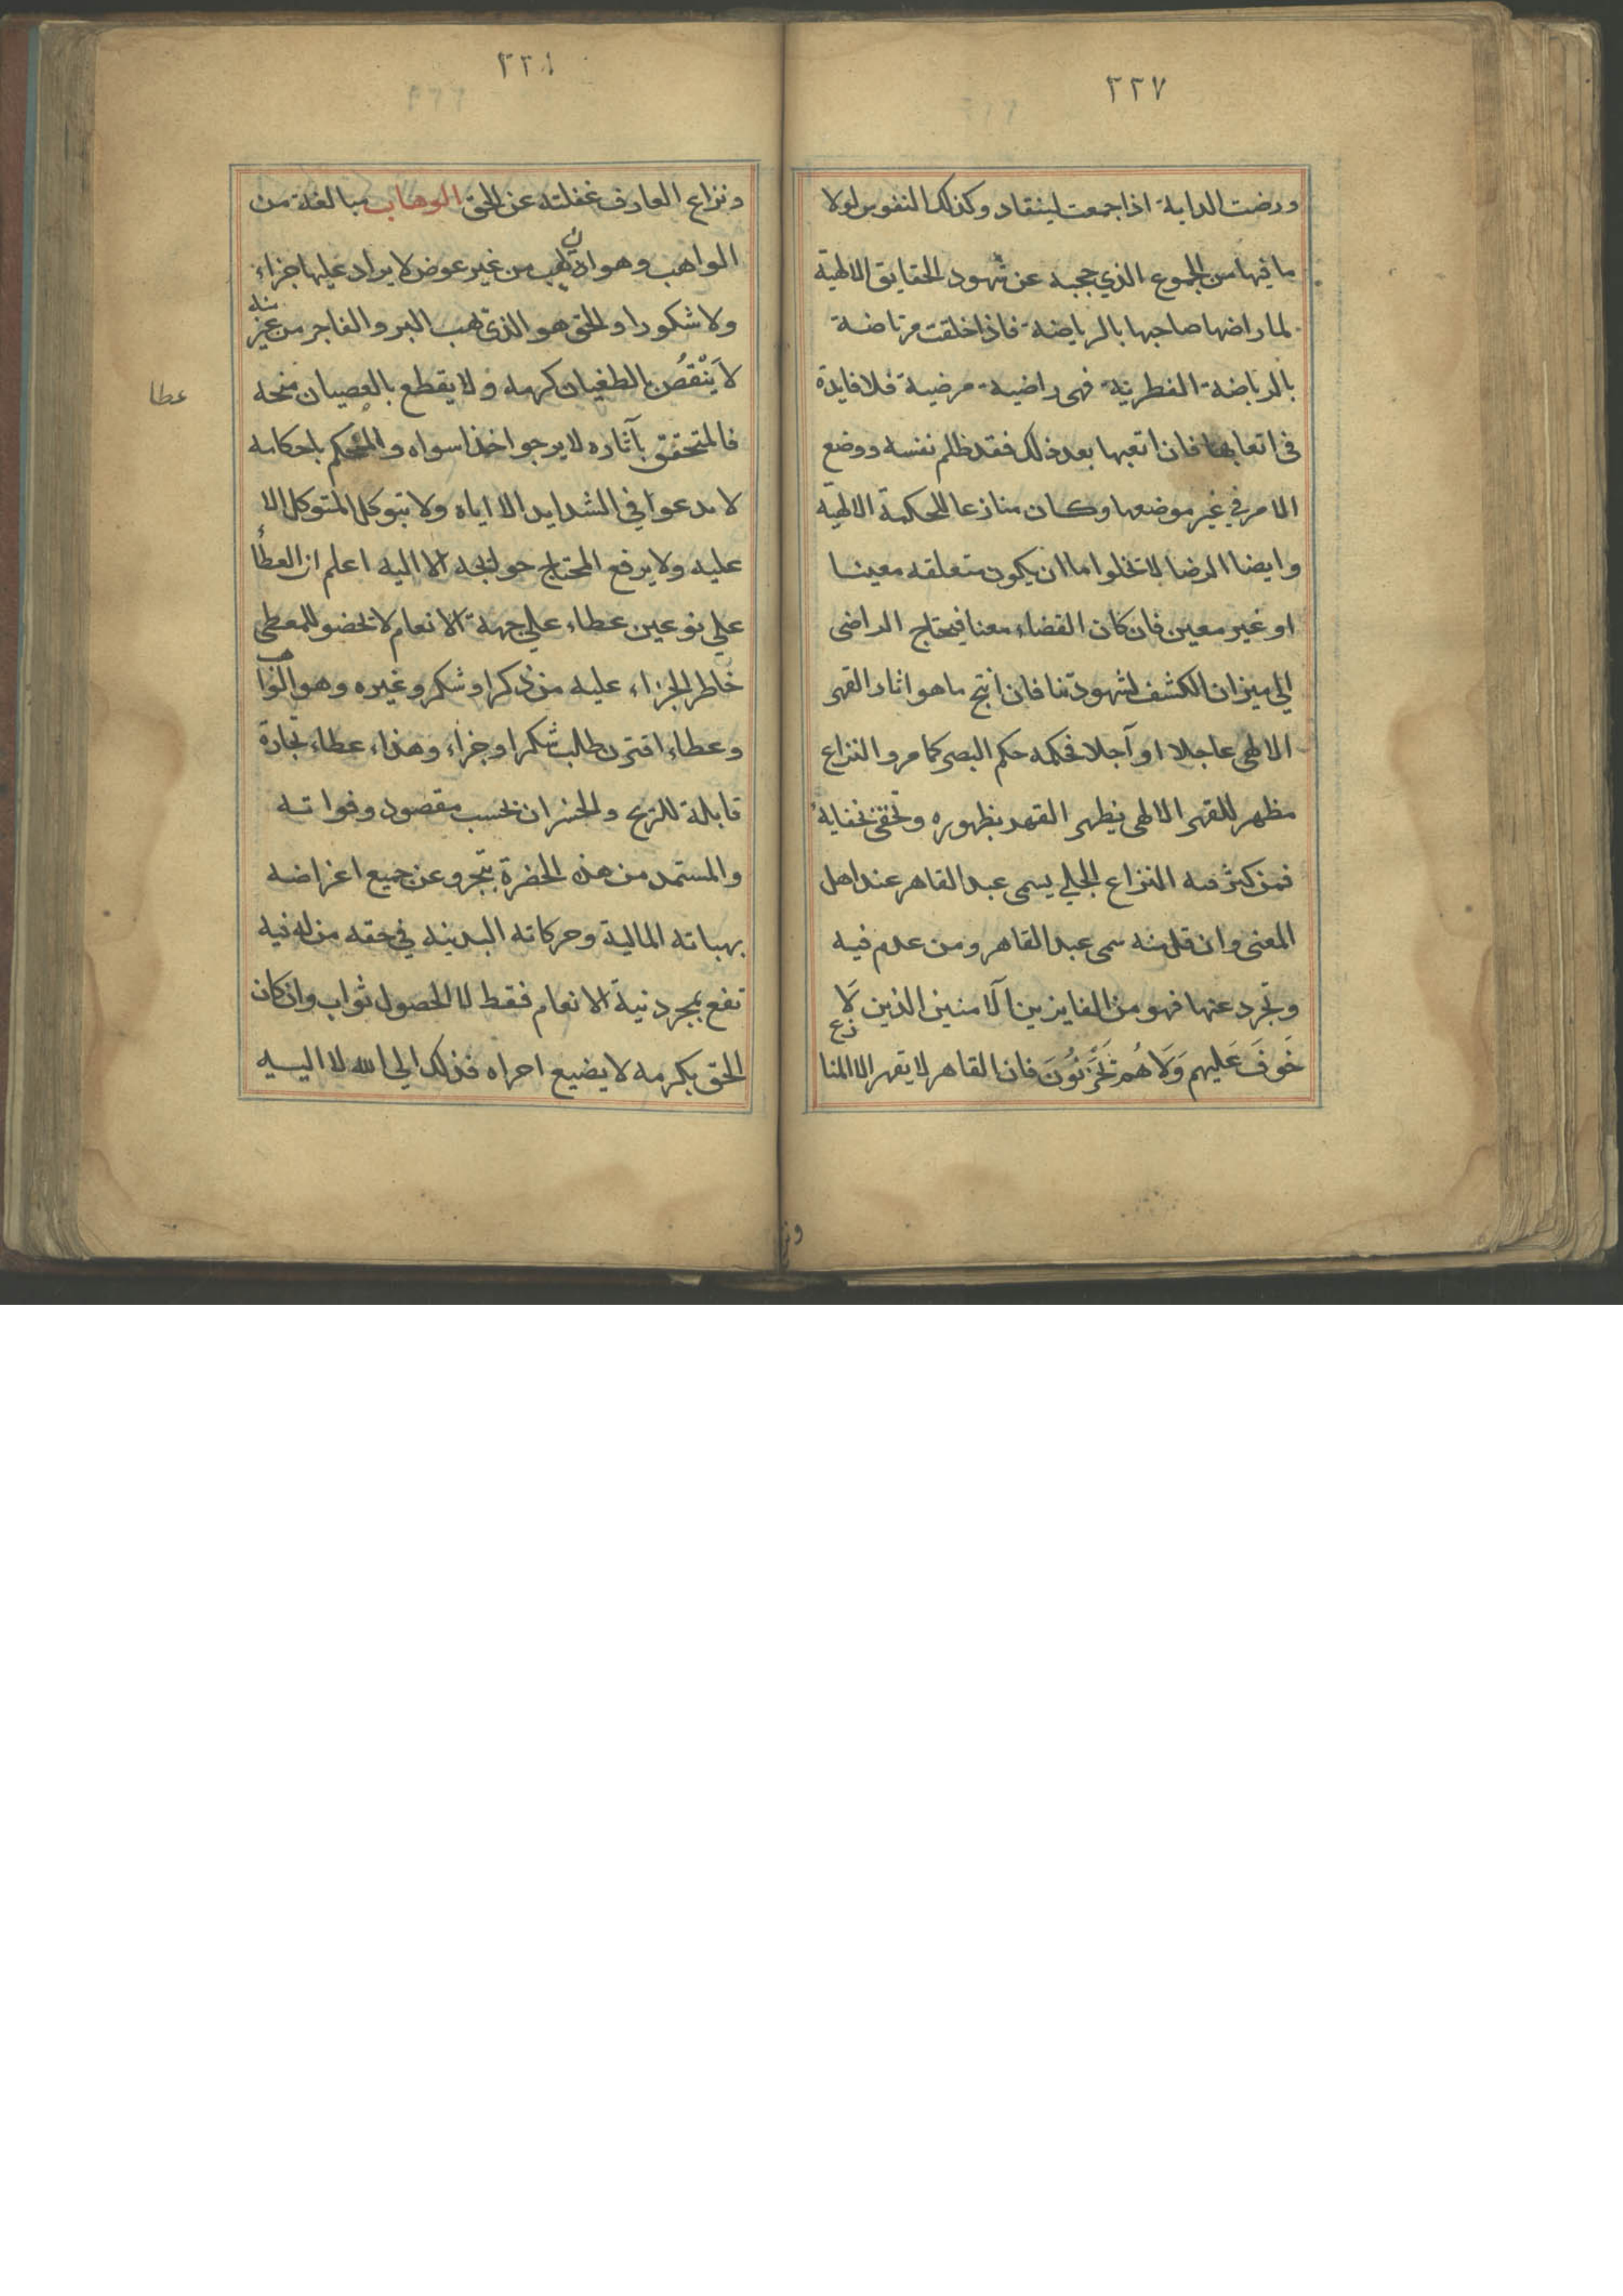 ٢٢٧
ورضت الدابة اذا جمعت لينقاد وكذلك النفوس لولا
ما فيها من الجموع الذي حجبه عن شهود الحقايق الالهية
لما راضها صاحبها بالرياضة فاذا خلقت مرتاضة
بالرياضة الفطرية فهى راضية مرضية فلا فايدة
فى اتعابها فان اتعبها بعد ذلك فقد ظلم نفسه ووضع
الامر في غير موضعها وكان منازعا للحكمة الالهية
وايضا الرضا لا تخلوا اما ان يكون متعلقه معينا
او غير معين فان كان القضاء معنا فيحتاج الراضى
الي ميزان الكشف لشهودتنا فان انتج ما هو اثار القهر
الالهى عاجلا او آجلا فحكمه حكم البصر كما مر والنزاع
مظهر للقهر الالهى يظهر القهر بظهوره وتخفى بخفايه
فمن كثر فيه النزاع الجلي يسمى عبد القاهر عند اهل
المعنى وان قل منه سمى عبد القاهر ومن عدم فيه
وتجرد عنها فهو من الفايزين الآمنين الذين لَا
خَوفَ عَليهم وَلَا هُم تَحزَنُونَ فان القاهر لا يقهر الا المنا
زع
ونز
٢٢٨
ونزاع العارف غفلته عن الحق الوهاب مبالغة من
الواهب وهو ان يهب من غير عوض لا يراد عليها جزاء
ولا شكورا والحق هو الذي يهب البر والفاجر من غير
منه
لا يَنْقُص بالطغيان كرمه ولا يقطع بالعصيان منحه
فالمتحقق بآثاره لا يرجوا اخذا سواه والمحكم باحكامه
لا يدعوا في الشدايد الا اياه ولا يتوكل المتوكل الا
عليه ولا يرفع المحتاج حوايجه الا اليه اعلم ان العطاء
علي نوعين عطاء علي جهة الانعام لا تخضو للمعطى
خاطر الجزاء عليه من ذكر او شكر وغيره وهو الوا
هب
وعطاء اقترن طالب شكر او جزاء وهذاء عطاء تجارة
قابلة للربح والخسران بحسب مقصود وفواته
والمستمد من هذه الحضرة يتجرو عن جميع اغراضه
بهباته المالية وحركاته البدنية في حقه من له فيه
نفع بمجرد نية الانعام فقط لا الحصول ثواب وان كان
الحق بكرمه لا يضيع اجراه فذلك الي الله لا اليه
عطا